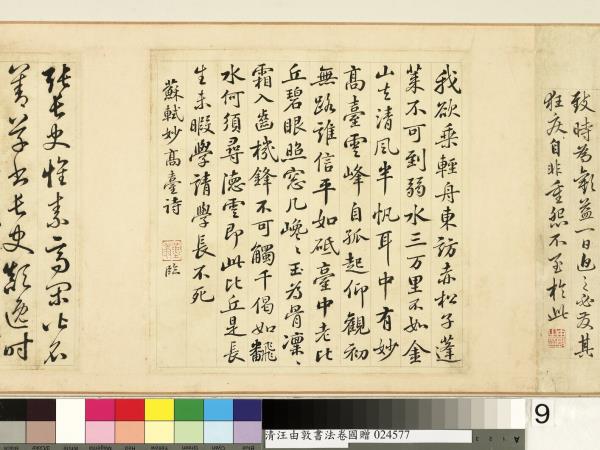 狂疾自非重怨不至於此
我欲乘輕舟東訪赤松子蓬
萊不可到弱水三万里不如金
山去清風半帆耳中有妙
髙臺雲峰自孤起仰觀初
無路誰信平如砥臺中老比
丘碧眼照窓几巉〻玉為骨凜〻
霜入齒機鋒不可觸千偈如飜
水何須尋德雲即此比丘是長
生未暇學請學長不死
蘇軾妙髙臺诗
臨
張長史懷素高閑皆名
善草書長史顛逸時
9
清汪由敦書法卷國贈 024577